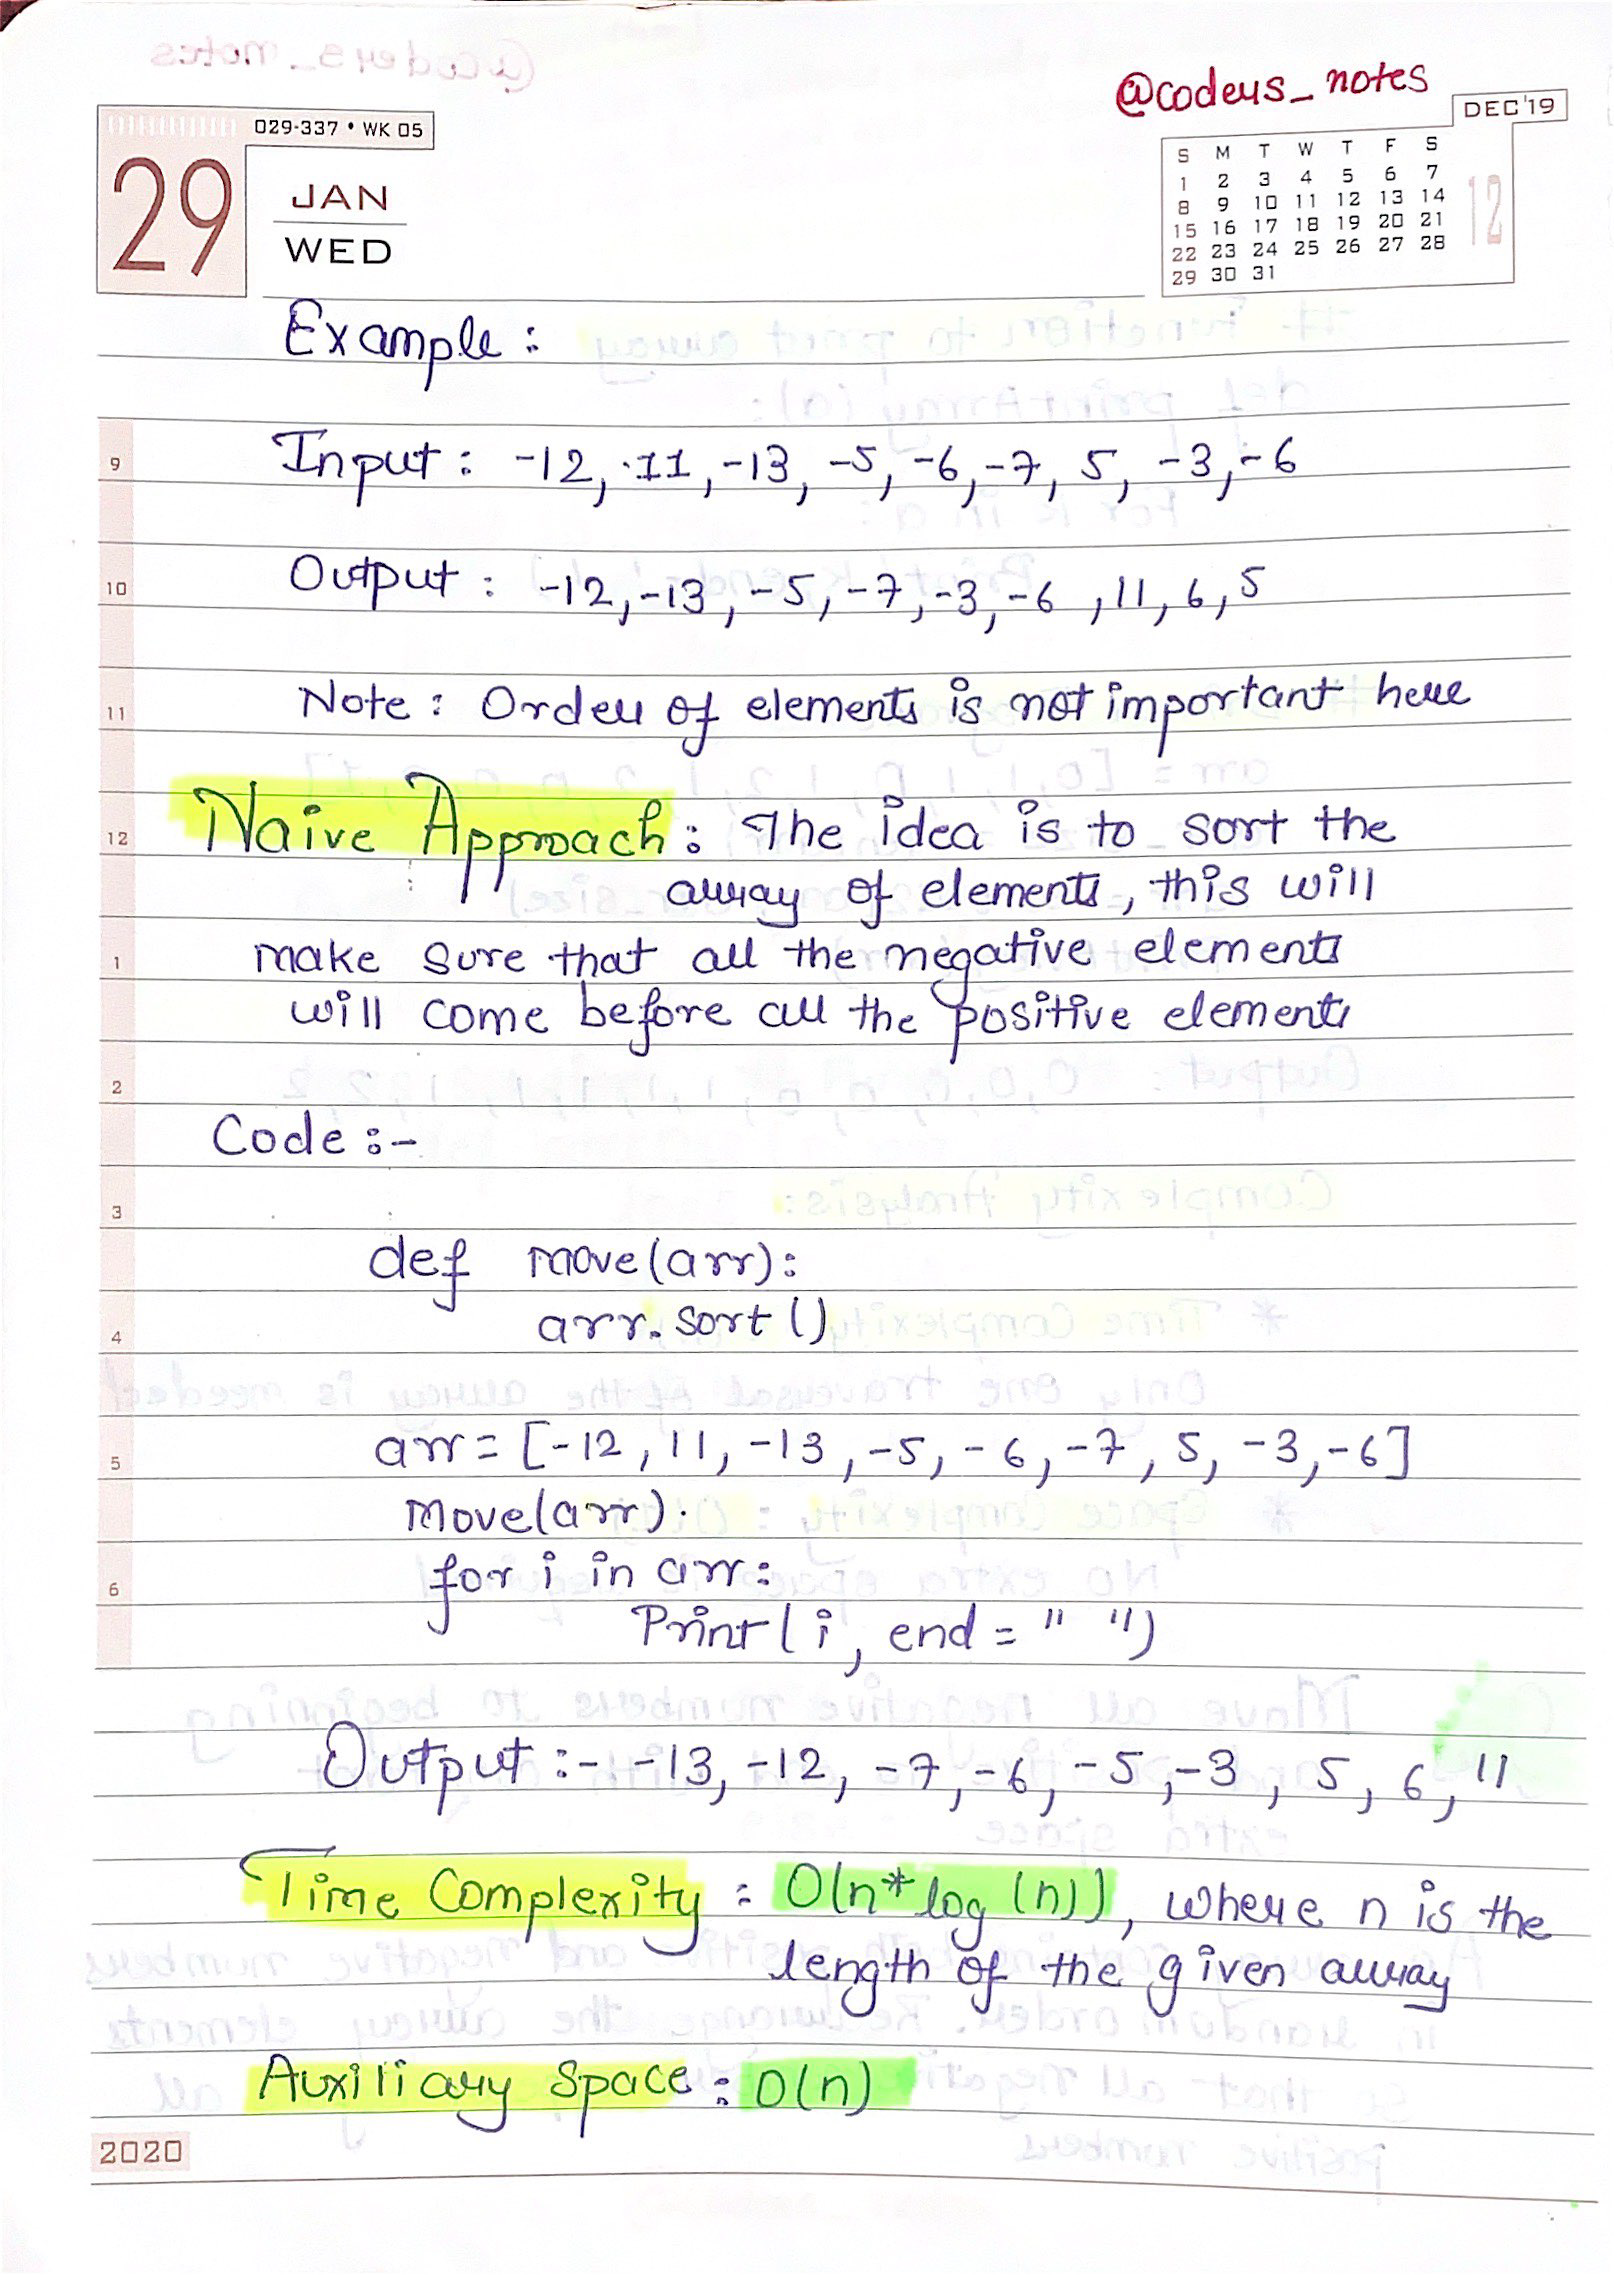 @coders_notes
029-337 • WK 05
29
JAN
WED
DEC'19
S M T W T F S
1 2 3 4 5 6 7
8 9 10 11 12 13 14
15 16 17 18 19 20 21
22 23 24 25 26 27 28
29 30 31
12
Example:
9
Input: -12, 11, -13, -5, -6, -7, 5, -3, -6
10
Output: -12, -13, -5, -7, -3, -6, 11, 6, 5
11
Note: Order of elements is not important here
12
Naive Approach: The idea is to sort the
array of elements, this will
1
make sure that all the negative elements
will come before all the positive elements
2
Code:-
3
def move(arr):
4
arr.sort()
5
arr = [-12, 11, -13, -5, -6, -7, 5, -3, -6]
move(arr).
6
for i in arr:
Print(i, end = " ")
Output:- -13, -12, -7, -6, -5, -3, 5, 6, 11
Time Complexity: O(n*log(n)), where n is the
length of the given array
Auxiliary Space: O(n)
2020